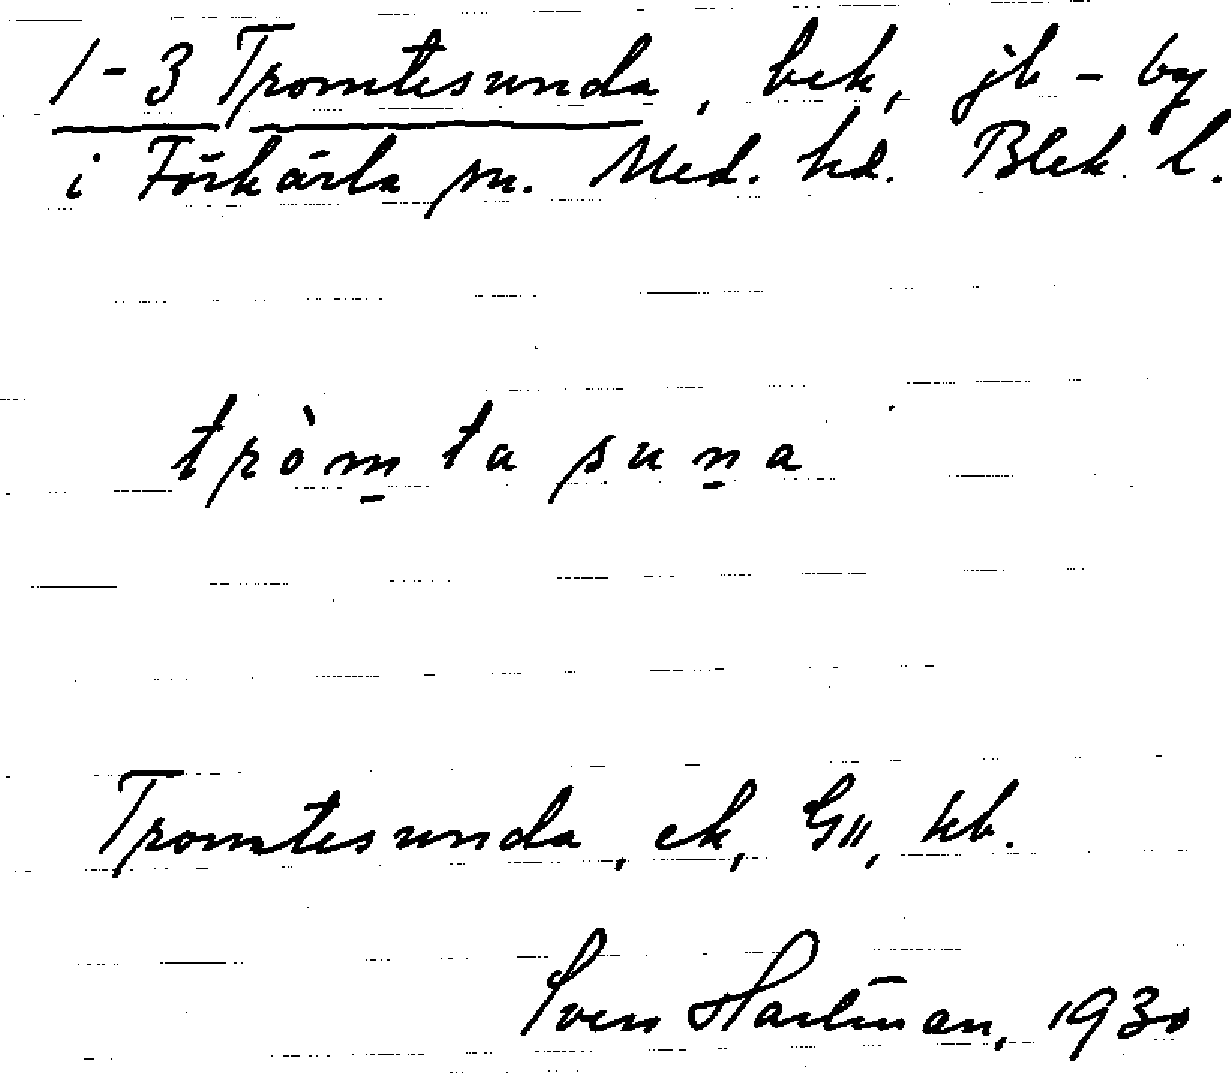 1-3 Tromtesunda, bek, jb-by
i Förkärla sn. Med. hd. Blek. l.
tròm̱ta suṉa
Tromtesunda, ek, GII, kb.
Sven Hartman, 1930